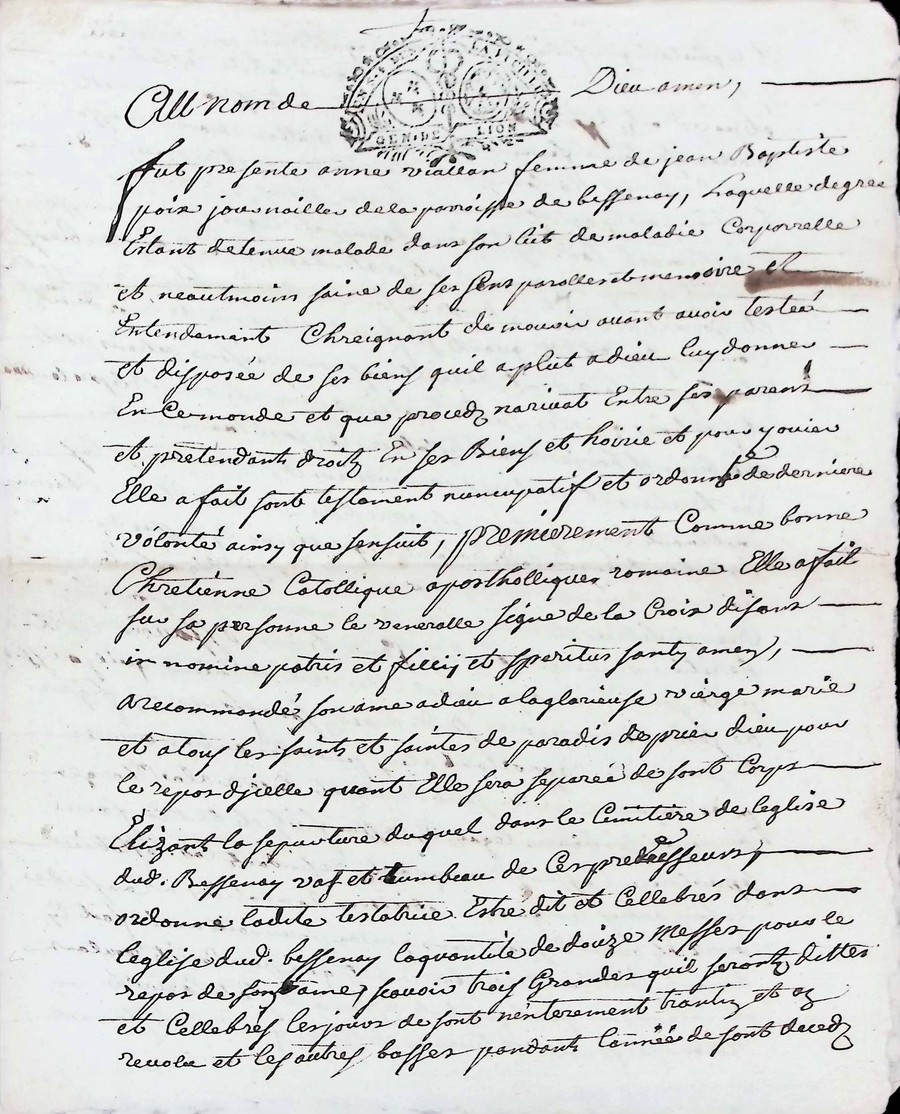 Au nom de Dieu amen,
GEN. DE LION
fut presente anne viallan femme de jean Baptiste
poix journaillier de la parroisse de bessenay, Laquelle de gree
Estant detenue malade dans son lit de maladie Corporrelle
et neautmoins saine de ses sens parolles et memoire et
Entendamant Chreignant de mourir avant avoir testeé
et disposée de ses biens quil a plut a dieu luy donner
En Ce monde et que procedz narivat Entre ses parens
et pretendants droitz En ses Biens et hoirie et pour y ovier
Elle a fait sont testament nuncupatif et ordonnce de derniere
volonté ainsy que sensuit, premierement Comme bonne
Chretienne Catollique apostholliques romaine Elle a fait
sur sa personne le veneralle signe de la Croix disant
in nomine patris et fillij et speritus santy amen,
a recommandé son ame a dieu a la glorieuse vierge marie
et a tous les saints et saintes de paradis de prier dieu pour
le repos djcelle quant Elle sera separée de sont Corps
Elizant la sepulture duquel dans le Cimitiere de leglise
dud. Bessenay vas et tumbeau de Ces predecesseurs,
ordonne ladite testatrice Estre dit et Cellebrés dans
leglise dud. bessenay la quantité de douze Messes pour le
repos de son ame, scavoir trois Grandes quil seront dittes
et Cellebrés les jours de sont nenterement trantin et az
revolu et les autres basses pandant lannéé de sont decedz